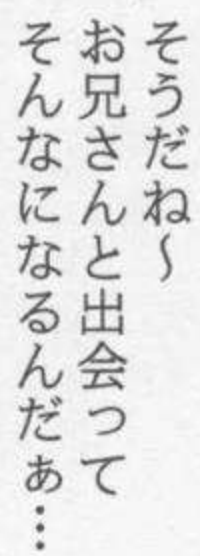 そうだね～
お兄さんと出会って
そんなになるんだぁ…